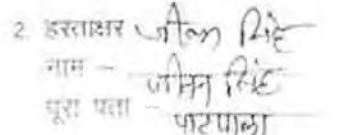 2. हस्ताक्षर जीवन सिंह
नाम – जीवन सिंह
पूरा पता – पाटपाला